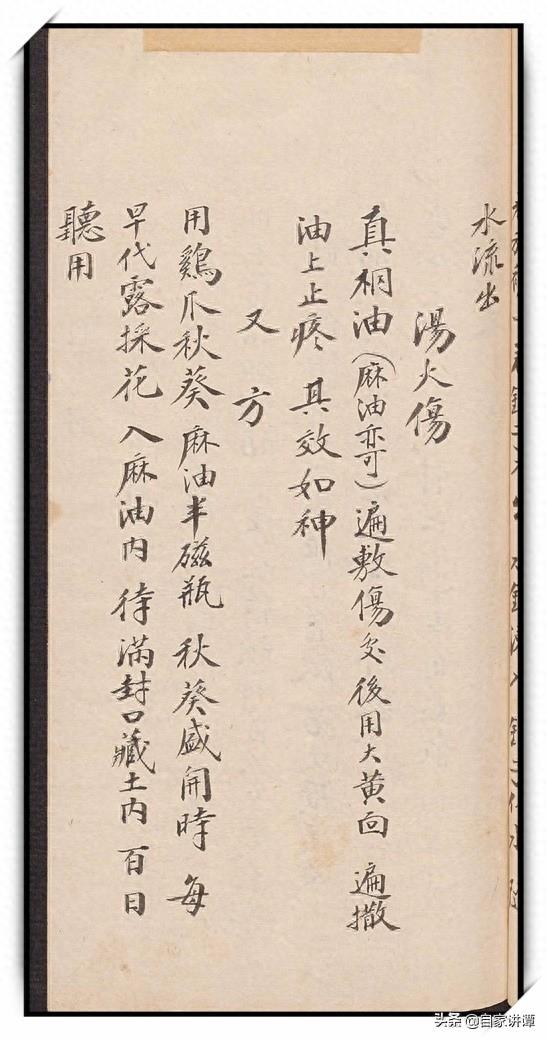 水流出
湯火傷
真桐油（麻油亦可）遍敷傷处後用大黄面 遍撒
油上止疼 其效如神
又方
用鷄爪秋葵 麻油半磁瓶 秋葵盛開時 每
早代露採花 入麻油内 待滿封口藏土内 百日
聽用
头条 @自家讲谭